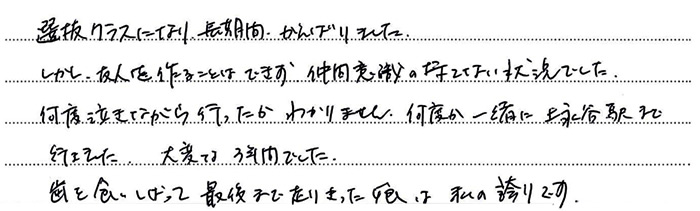 選抜クラスになり、長期間、がんばりました。
しかし、友人を作ることはできず 仲間意識の持てない状況でした。
何度泣きながら行ったか わかりません。何度か 一緒に 上永谷駅まで
行きました。 大変な 3年間でした。
歯を食いしばって 最後まで走りきった娘は 私の誇りです。